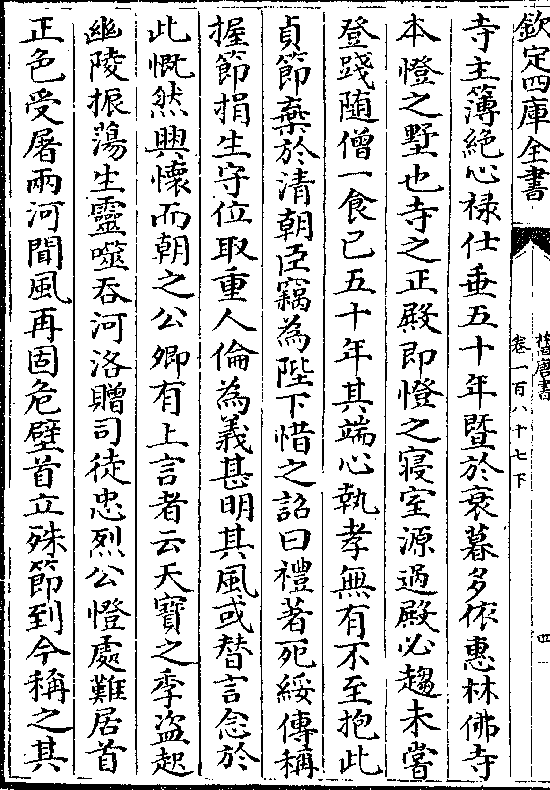 欽定四庫全書
舊唐書
卷一百八十七下
四
寺主簿絶心禄仕垂五十年暨於衰暮多依惠林佛寺
本憕之墅也寺之正殿即憕之寢室源過殿必趨未嘗
登踐隨僧一食已五十年其端心執孝無有不至抱此
貞節棄於清朝臣竊為陛下惜之詔曰禮著死綏傳稱
握節捐生守位取重人倫為義甚明其風或替言念於
此慨然興懷而朝之公卿有上言者云天寶之季盗起
幽陵振蕩生靈噬吞河洛贈司徒忠烈公憕處難居首
正色受屠兩河聞風再固危壁首立殊節到今稱之其